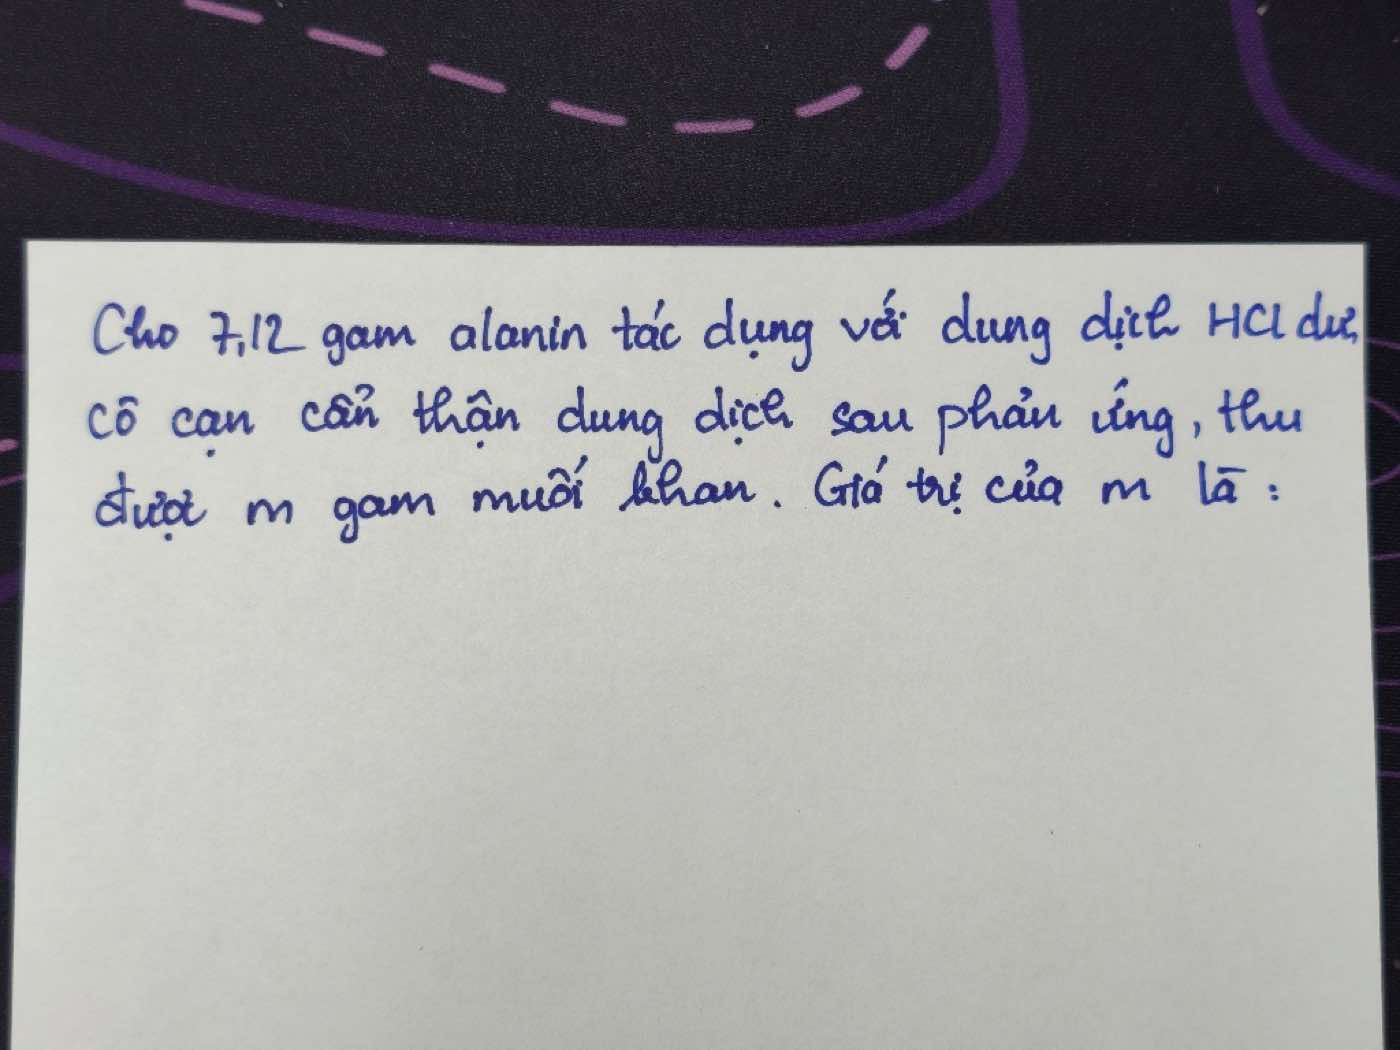 Cho 7,12 gam alanin tác dụng với dung dịch HCl dư,
cô cạn cẩn thận dung dịch sau phản ứng, thu
được m gam muối khan. Giá trị của m là: